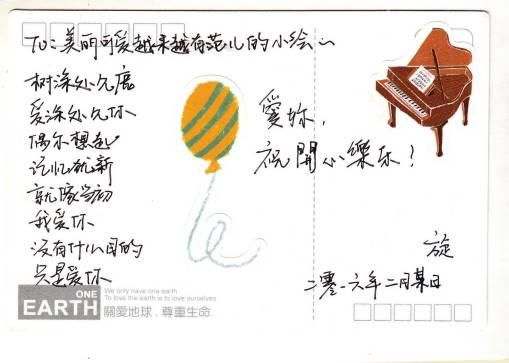 To：美丽可爱越来越有范儿的小绘
树深处见鹿
爱深处见你
偶尔想起
记忆犹新
就像当初
我爱你
没有什么目的
只是爱你
愛妳，
祝開心樂乐！
旋
二零一六年二月某日
ONE
EARTH
We only have one earth
To love the earth is to love ourselves
關愛地球．尊重生命